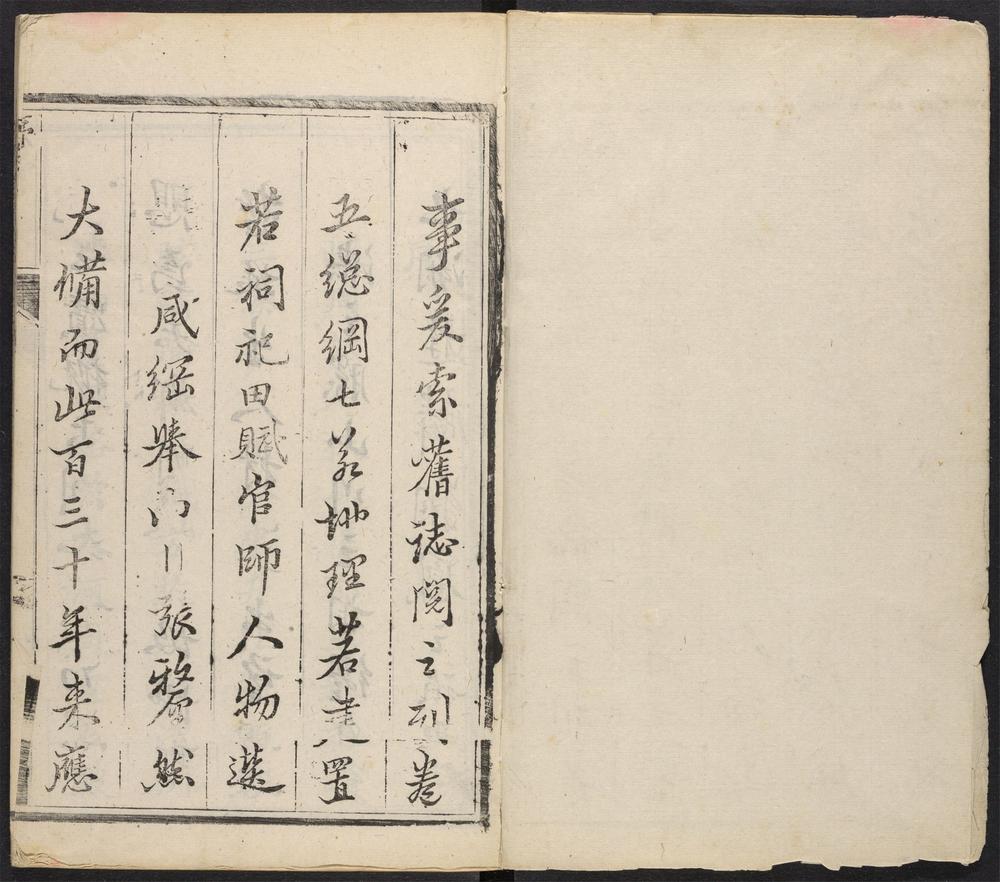 事爰索舊誌閱之列卷
五總綱七若地理若建置
若祠祀田賦官師人物選
咸綱舉張整然
大備而此百三十年來應